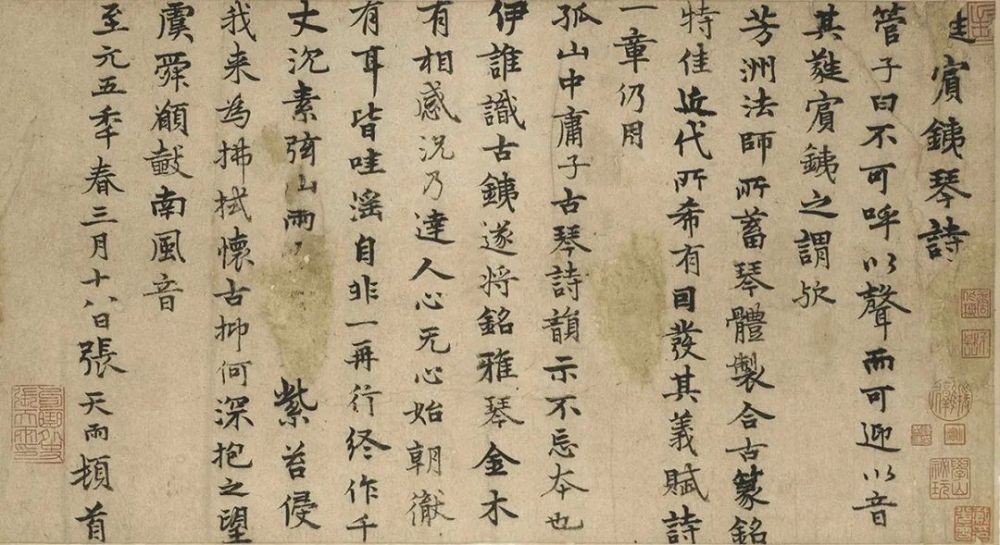 賓銕琴詩
管子曰不可呼以聲而可迎以音
其蕤賓銕之謂欤
芳洲法師所蓄琴體製合古篆銘
特佳近代所希有囙發其義賦詩
一章仍用
孤山中庸子古琴詩韻示不忘本也
伊誰識古銕遂將銘雅琴金木
有相感況乃達人心无心始朝徹
有耳皆哇滛自非一再行終作千
丈沉素弦山雨紫苔侵
我来為拂拭懷古抑何深抱之望
虞舜願鼓南風音
至元五季春三月十八日張天雨頓首